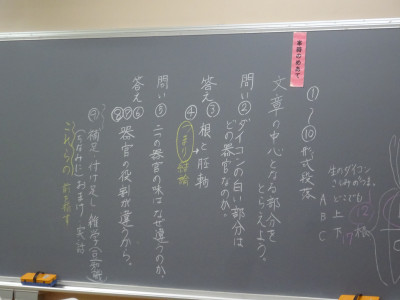 生のダイコン
どこでも
A 上
B
C 下
本時のめあて
①〜⑩形式段落
文章の中心となる部分を
とらえよう。
問い②ダイコンの白い部分は
どの器官なのか。
答え③根と胚軸
④つまり 結論
問い⑤二つの器官の味はなぜ違うのか。
答え⑥⑦⑧器官の役割が違うから。
⑨補足 付け足し 雑学(豆知識)
(ちなみに)おまけ 実話
これらの 前を指す